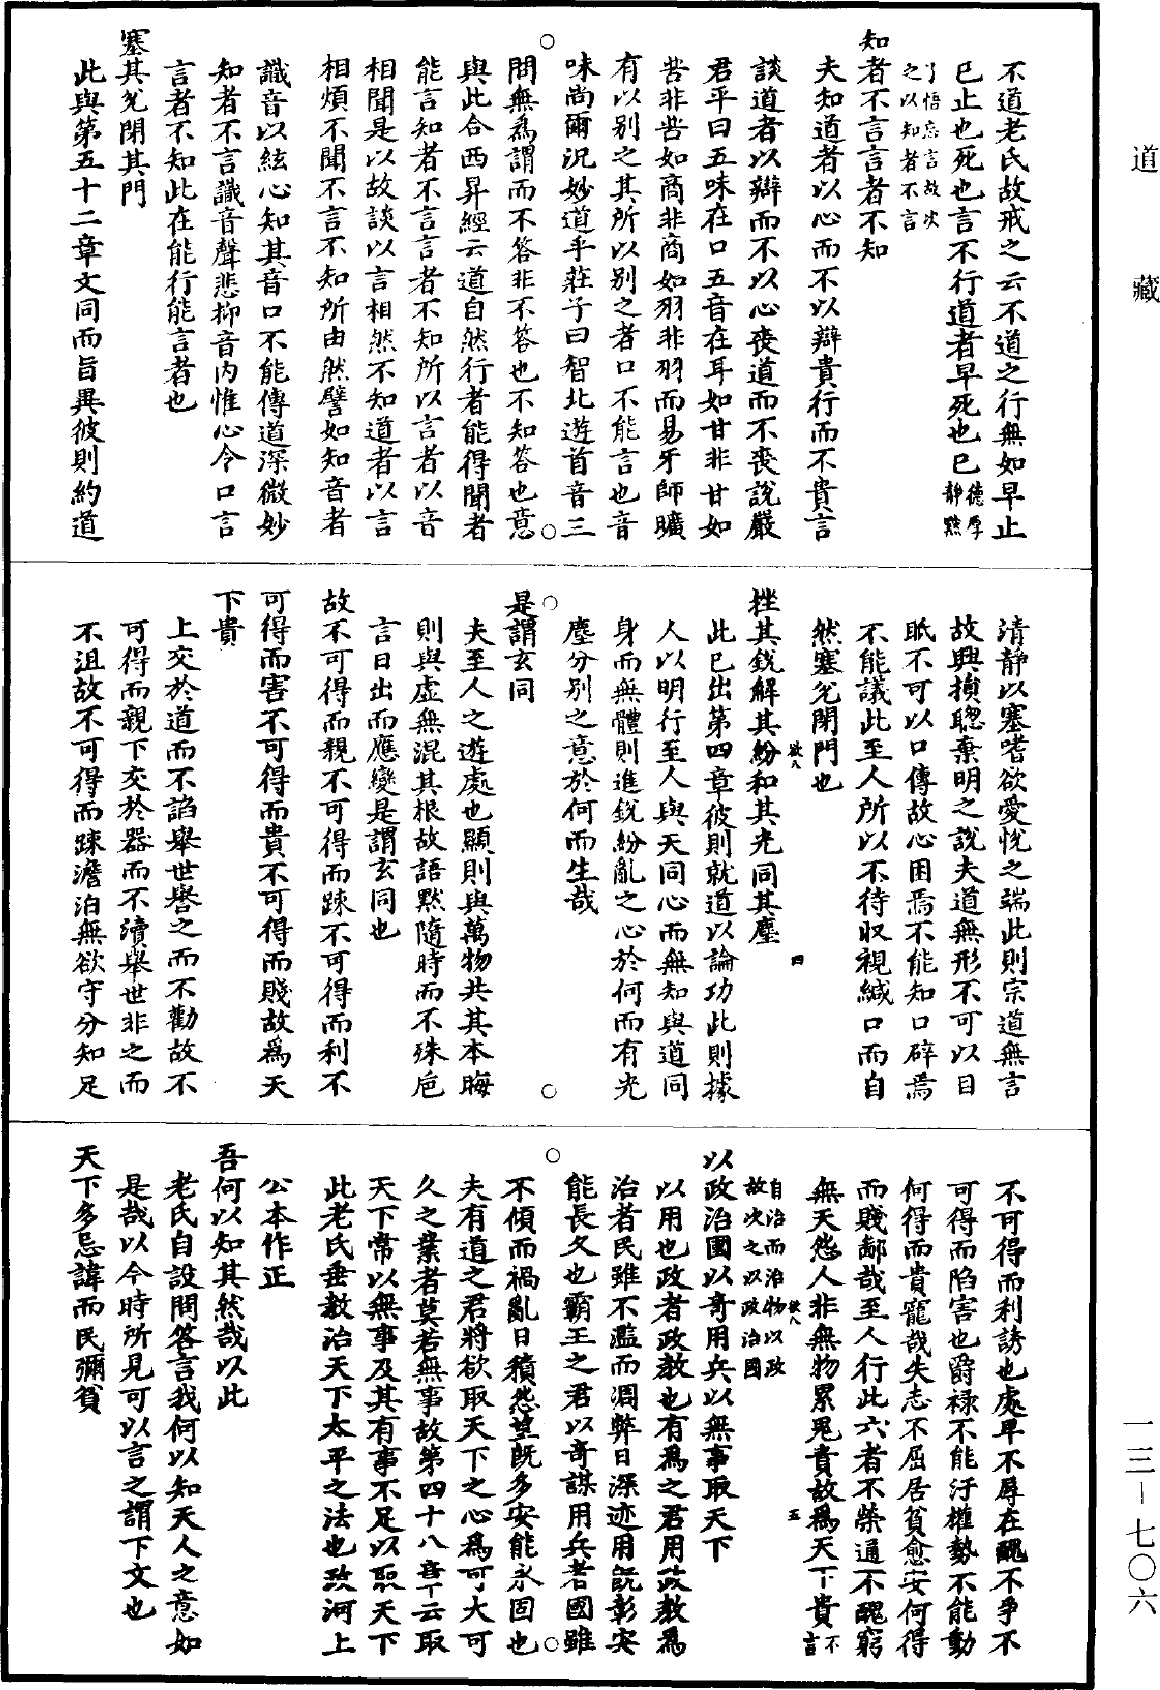 道藏
不道老氏故戒之云不道之行無如早止
已止也死也言不行道者早死也已德厚靜黙
了悟忘言故次之以知者不言
知者不言言者不知
夫知道者以心而不以辯貴行而不貴言
談道者以辯而不以心喪道而不喪說嚴
君平曰五味在口五音在耳如甘非甘如
苦非苦如商非商如羽非羽而易牙師曠
有以别之其所以别之者口不能言也音
味尚爾況妙道乎莊子曰智北遊首音三
問無爲謂而不答非不答也不知答也意
與此合西昇經云道自然行者能得聞者
能言知者不言言者不知所以言者以音
相聞是以故談以言相然不知道者以言
相煩不聞不言不知所由然譬如知音者
識音以絃心知其音口不能傳道深微妙
知者不言識音聲悲抑音内惟心令口言
言者不知此在能行能言者也
塞其兌閉其門
此與第五十二章文同而旨異彼則約道
清静以塞嗜欲愛悅之端此則宗道無言
故興損聦棄明之說夫道無形不可以目
眂不可以口傳故心困焉不能知口辟焉
不能議此至人所以不待収視緘口而自
然塞兌閉門也
挫其銳解其紛和其光同其塵
欲八 四
此已出第四章彼則就道以論功此則據
人以明行至人與天同心而無知與道同
身而無體則進銳紛亂之心於何而有光
塵分别之意於何而生哉
是謂玄同
夫至人之遊處也顯則與萬物共其本晦
則與虛無混其根故語默隨時而不殊巵
言日出而應變是謂玄同也
故不可得而親不可得而踈不可得而利不
可得而害不可得而貴不可得而賤故爲天
下貴
上交於道而不諂舉世譽之而不勸故不
可得而親下交於器而不瀆舉世非之而
不沮故不可得而踈澹泊無欲守分知足
不可得而利誘也處卑不辱在醜不爭不
可得而陷害也爵祿不能汙權勢不能動
何得而貴寵哉失志不屈居貧愈安何得
而賤鄙哉至人行此六者不榮通不醜窮
無天怨人非無物累鬼責故爲天下貴不言
自治而治物以政故次之以政治國
欲八 五
以政治國以奇用兵以無事取天下
以用也政者政教也有爲之君用政教爲
治者民雖不濫而凋弊日深迹用既彰安
能長久也霸王之君以奇謀用兵者國雖
不傾而禍亂日積怨望既多安能永固也
夫有道之君將欲取天下之心爲可大可
久之業者莫若無事故第四十八章云取
天下常以無事及其有事不足以取天下
此老氏垂教治天下太平之法也政河上
公本作正
吾何以知其然哉以此
老氏自設問答言我何以知天人之意如
是哉以今時所見可以言之謂下文也
天下多忌諱而民彌貧
一三－七〇六